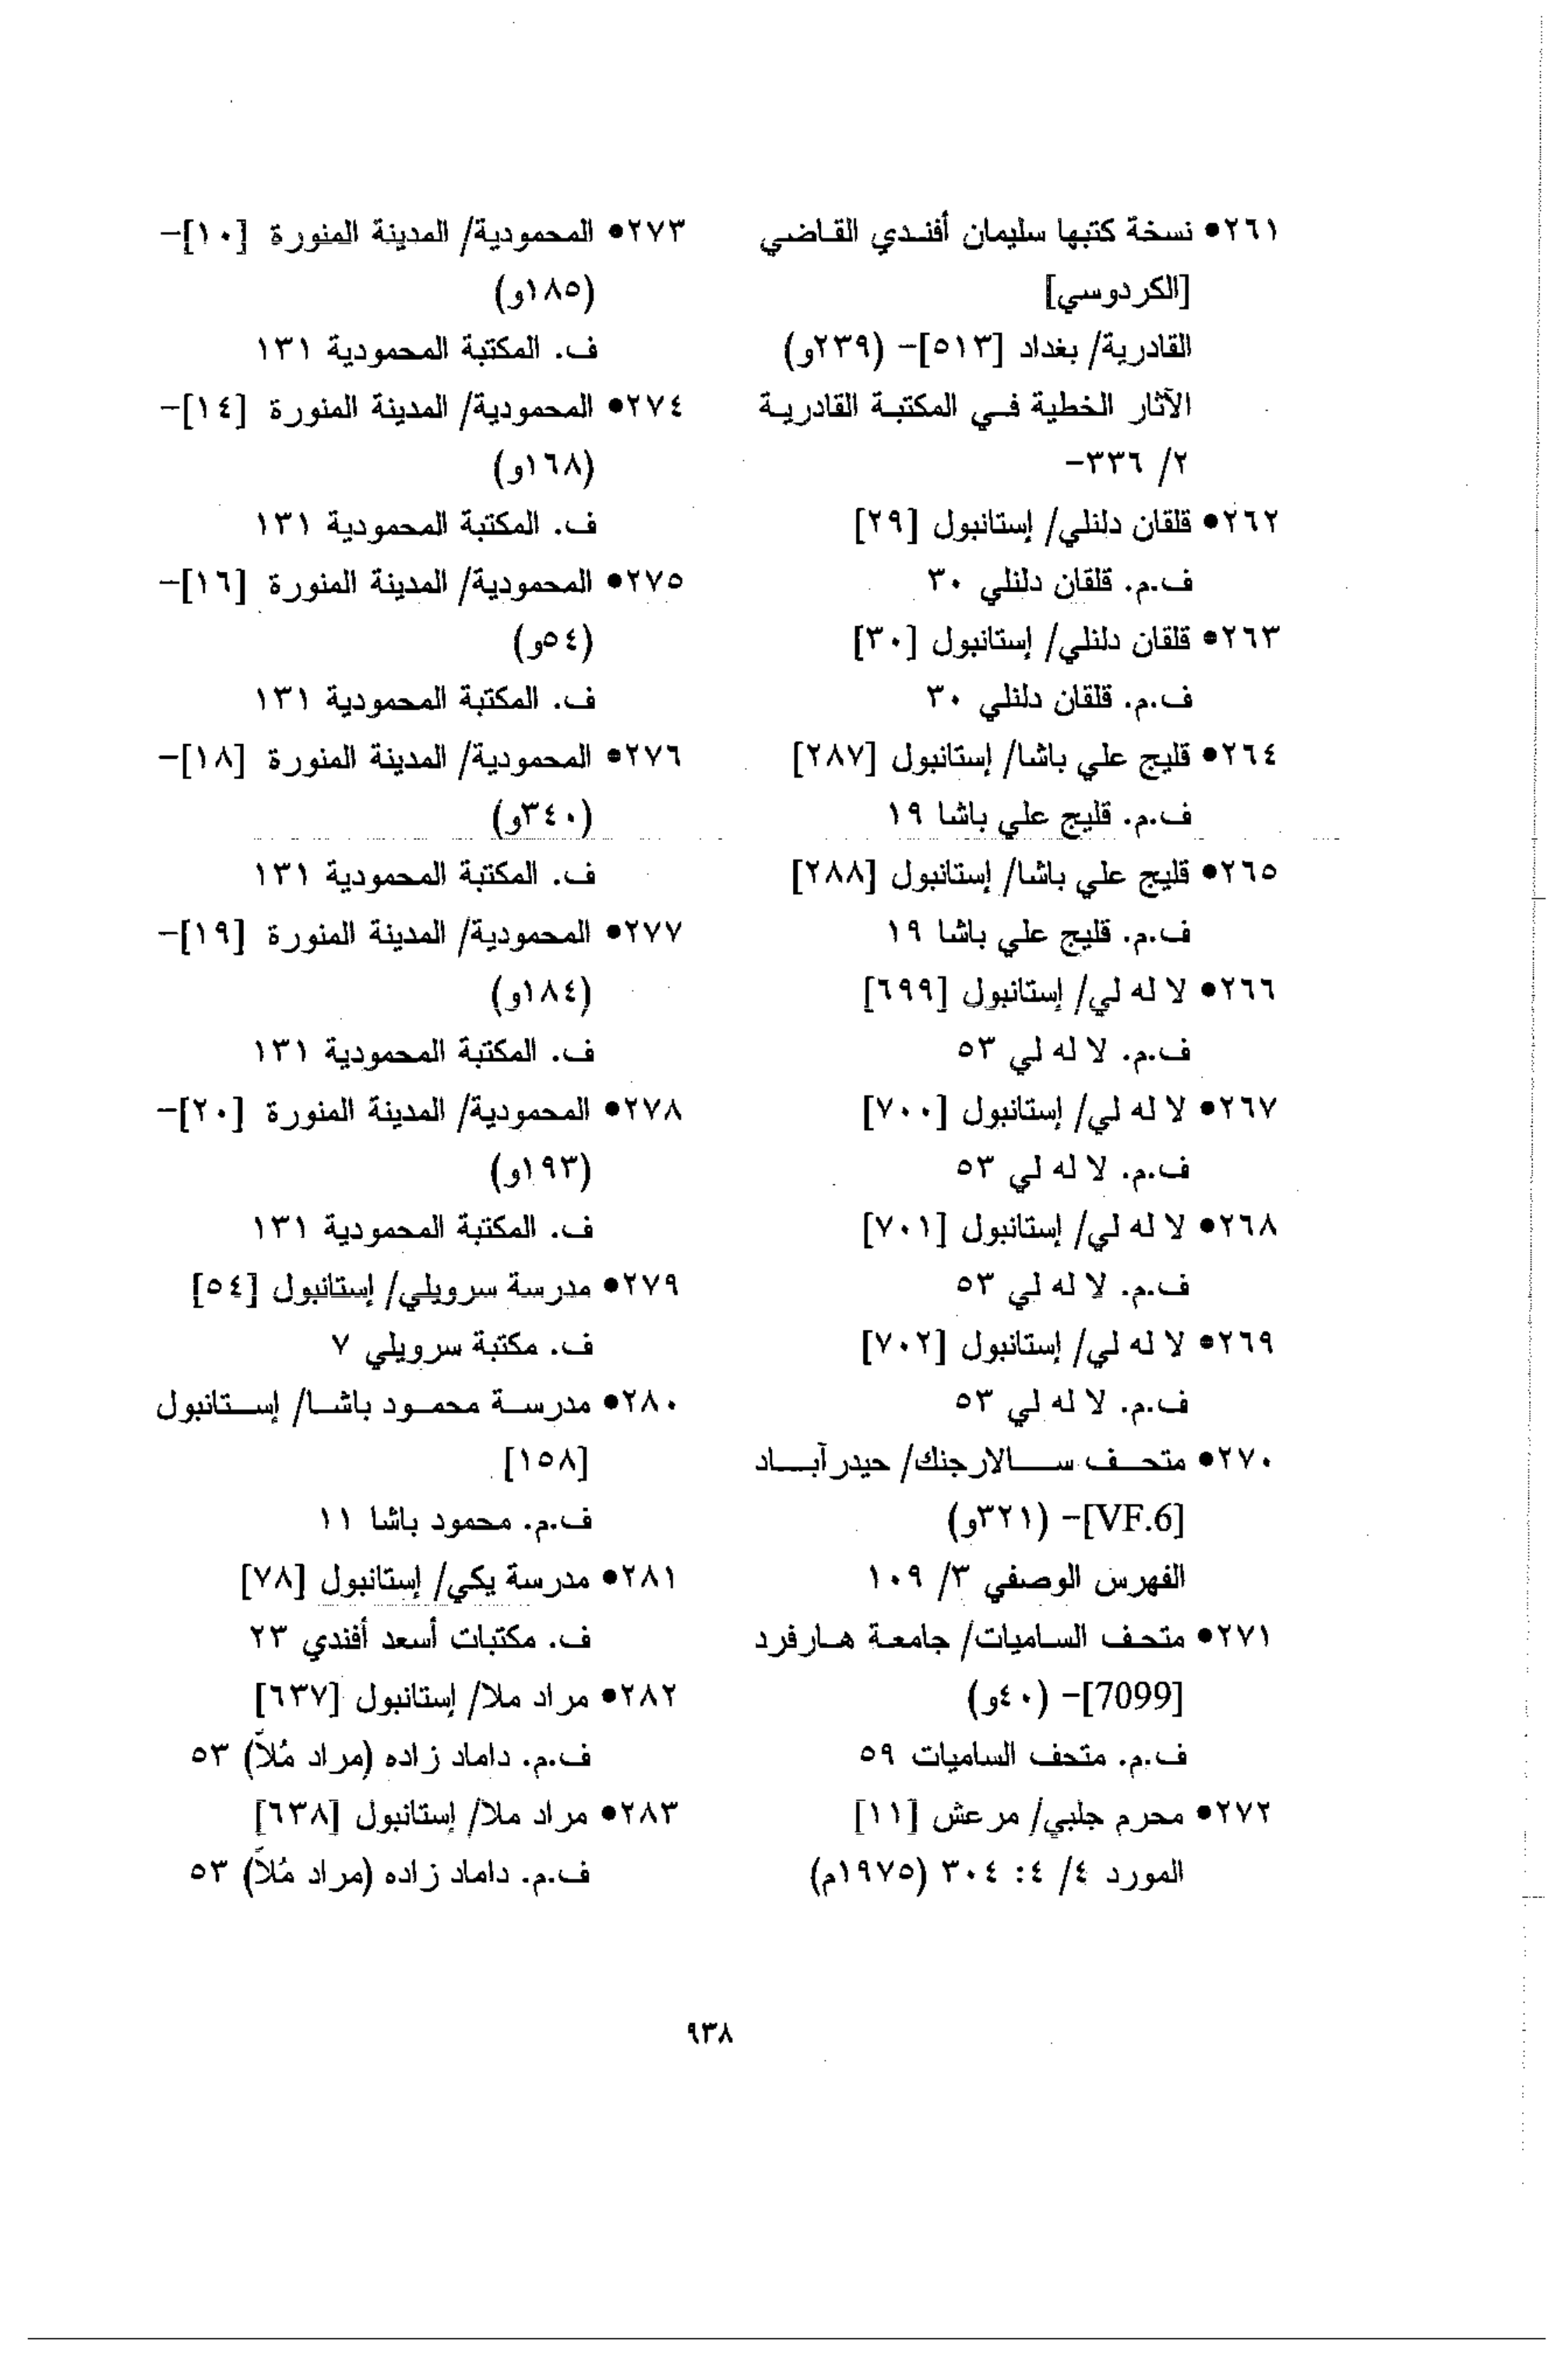 ٢٦١• نسخة كتبها سليمان أفندي القاضي
[الكردوسي]
القادرية/ بغداد [٥١٣]- (٢٣٩و)
الآثار الخطية في المكتبة القادرية
٢/ ٣٣٦-
٢٦٢• قلقان دلنلي/ إستانبول [٢٩]
ف.م. قلقان دلنلي ٣٠
٢٦٣• قلقان دلنلي/ إستانبول [٣٠]
ف.م. قلقان دلنلي ٣٠
٢٦٤• قليج علي باشا/ إستانبول [٢٨٧]
ف.م. قليج علي باشا ١٩
٢٦٥• قليج علي باشا/ إستانبول [٢٨٨]
ف.م. قليج علي باشا ١٩
٢٦٦• لا له لي/ إستانبول [٦٩٩]
ف.م. لا له لي ٥٣
٢٦٧• لا له لي/ إستانبول [٧٠٠]
ف.م. لا له لي ٥٣
٢٦٨• لا له لي/ إستانبول [٧٠١]
ف.م. لا له لي ٥٣
٢٦٩• لا له لي/ إستانبول [٧٠٢]
ف.م. لا له لي ٥٣
٢٧٠• متحف سالارجنك/ حيدرآباد
[VF.6]- (٣٢١و)
الفهرس الوصفي ٣/ ١٠٩
٢٧١• متحف الساميات/ جامعة هارفرد
[7099]- (٤٠و)
ف.م. متحف الساميات ٥٩
٢٧٢• محرم جلبي/ مرعش [١١]
المورد ٤/ ٤: ٣٠٤ (١٩٧٥م)
٢٧٣• المحمودية/ المدينة المنورة [١٠]-
(١٨٥و)
ف. المكتبة المحمودية ١٣١
٢٧٤• المحمودية/ المدينة المنورة [١٤]-
(١٦٨و)
ف. المكتبة المحمودية ١٣١
٢٧٥• المحمودية/ المدينة المنورة [١٦]-
(٥٤و)
ف. المكتبة المحمودية ١٣١
٢٧٦• المحمودية/ المدينة المنورة [١٨]-
(٣٤٠و)
ف. المكتبة المحمودية ١٣١
٢٧٧• المحمودية/ المدينة المنورة [١٩]-
(١٨٤و)
ف. المكتبة المحمودية ١٣١
٢٧٨• المحمودية/ المدينة المنورة [٢٠]-
(١٩٣و)
ف. المكتبة المحمودية ١٣١
٢٧٩• مدرسة سرويلي/ إستانبول [٥٤]
ف. مكتبة سرويلي ٧
٢٨٠• مدرسة محمود باشا/ إستانبول
[١٥٨]
ف.م. محمود باشا ١١
٢٨١• مدرسة يكي/ إستانبول [٧٨]
ف. مكتبات أسعد أفندي ٢٣
٢٨٢• مراد ملا/ إستانبول [٦٣٧]
ف.م. داماد زاده (مراد مُلاَّ) ٥٣
٢٨٣• مراد ملا/ إستانبول [٦٣٨]
ف.م. داماد زاده (مراد مُلاَّ) ٥٣
٩٣٨